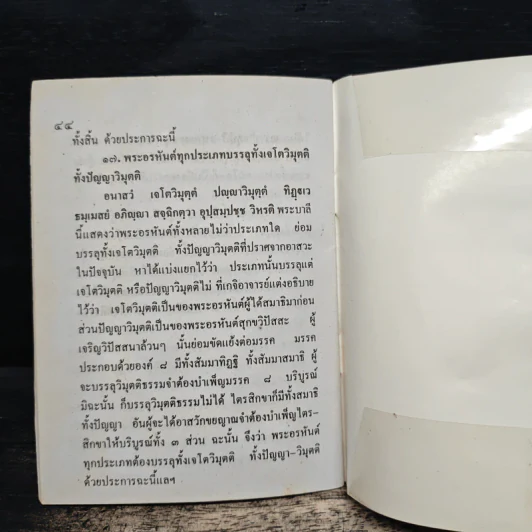 ๔๔
ทั้งสิ้น ด้วยประการฉะนี้
๑๗. พระอรหันต์ทุกประเภทบรรลุทั้งเจโตวิมุตติ
ทั้งปัญญาวิมุตติ
อนาสวํ เจโตวิมุตฺตํ ปญฺญาวิมุตฺตํ ทิฏฺเว
ธมฺเมสยํ อภิญฺญา สจฺฉิกตฺวา อุปฺสมฺปชฺช วิหรติ พระบาลี
นี้แสดงว่าพระอรหันต์ทั้งหลายไม่ว่าประเภทใด ย่อม
บรรลุทั้งเจโตวิมุตติ ทั้งปัญญาวิมุตติที่ปราศจากอาสวะ
ในปัจจุบัน หาได้แบ่งแยกไว้ว่า ประเภทนั้นบรรลุแต่
เจโตวิมุตติ หรือปัญญาวิมุตติไม่ ที่เกจิอาจารย์แต่งอธิบาย
ไว้ว่า เจโตวิมุตติเป็นของพระอรหันต์ผู้ได้สมาธิมาก่อน
ส่วนปัญญาวิมุตติเป็นของพระอรหันต์สุกขวิปัสสะ ผู้
เจริญวิปัสสนาล้วนๆ นั้นย่อมขัดแย้งต่อมรรค มรรค
ประกอบด้วยองค์ ๘ มีทั้งสัมมาทิฏฐิ ทั้งสัมมาสมาธิ ผู้
จะบรรลุวิมุตติธรรมจำต้องบำเพ็ญมรรค ๘ บริบูรณ์
มิฉะนั้น ก็บรรลุวิมุตติธรรมไม่ได้ ไตรสิกขาก็มีทั้งสมาธิ
ทั้งปัญญา อันผู้จะได้อาสวักขยญาณจำต้องบำเพ็ญไตร–
สิกขาให้บริบูรณ์ทั้ง ๓ ส่วน ฉะนั้น จึงว่า พระอรหันต์
ทุกประเภทต้องบรรลุทั้งเจโตวิมุตติ ทั้งปัญญา–วิมุตติ
ด้วยประการฉะนี้แลฯ